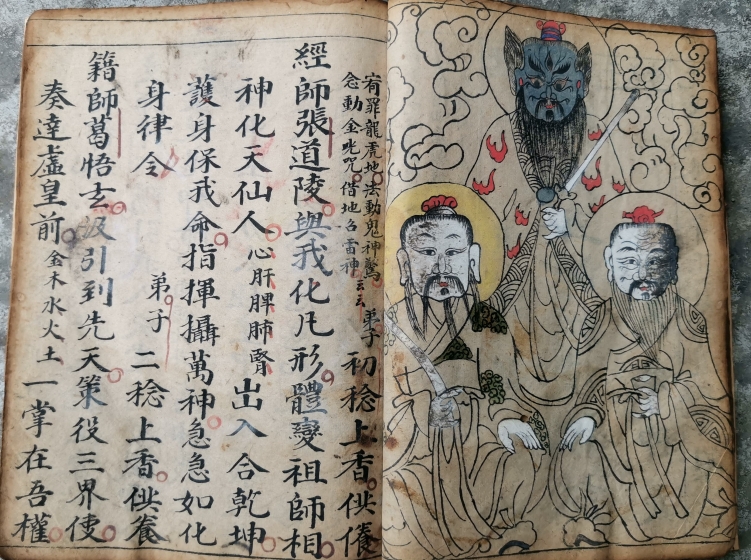 宥罪龍虎地法動鬼神驚
念動金咒偕地召雷神云云
弟子初稔上香供養
經師張道陵與我化凡形體變祖師相
神化天仙人心肝脾肺腎出入合乾坤
護身保我命指揮攝萬神急急如化
身律令 弟子二稔上香供養
籍師葛悟玄汲引到先天策役三界使
奏達虛皇前金木水火土一掌在吾權